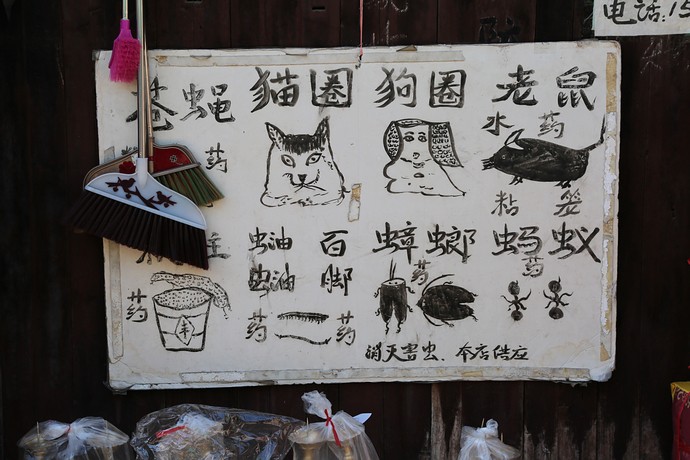 电话:15
苍蝇 猫圈 狗圈 老鼠
药
水药
粘
虫油 百 蟑螂 蚂蚁
虫油 脚
药 药
药 药 药
消灭害虫、本店供应